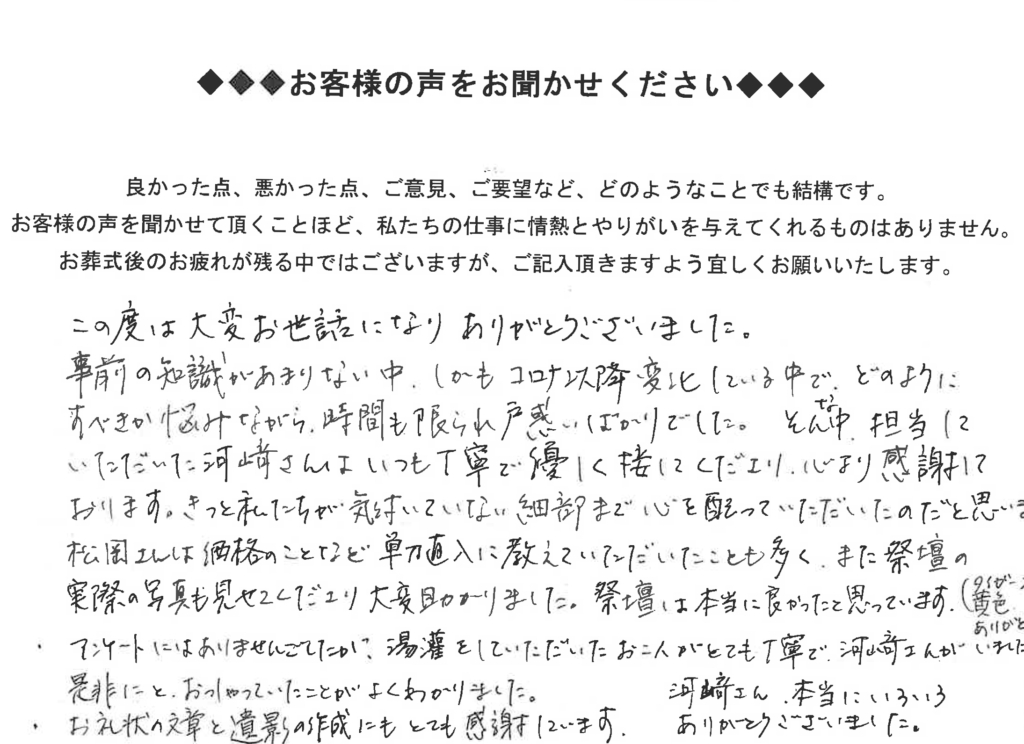 ◆◆◆お客様の声をお聞かせください◆◆◆
良かった点、悪かった点、ご意見、ご要望など、どのようなことでも結構です。
お客様の声を聞かせて頂くことほど、私たちの仕事に情熱とやりがいを与えてくれるものはありません。
お葬式後のお疲れが残る中ではございますが、ご記入頂きますよう宜しくお願いいたします。
この度は大変お世話になり ありがとうございました。
事前の知識があまりない中、しかもコロナ以降変化している中で、どのように
すべきか悩みながら、時間も限られ戸惑いばかりでした。そんな中、担当して
いただいた河﨑さんはいつも丁寧で優しく接してくださり、心より感謝して
おります。きっと私たちが気付いていない細部まで心を配っていただいたのだと思いま
松岡さんは価格のことなど単刀直入に教えていただいたことも多く、また祭壇の
実際の写真も見せてくださり大変助かりました。祭壇は本当に良かったと思っています。(
黄色
ありがと
いました
・アンケートにはありませんでしたが、湯灌をしていただいたお二人がとても丁寧で、河﨑さんが
是非にと、おっしゃっていたことがよくわかりました。
・お礼状の文章と遺影の作成にもとても感謝しています。
河﨑さん、本当にいろいろ
ありがとうございました。